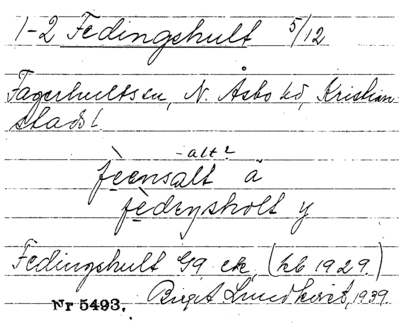 1-2 Fedingshult 5/12
Fagerhults sn, N. Åsbo hd, Kristian-
stads l.
-alt?
fèensalt ä
fèdensholt y
Fedingshult G9 ek. (hb 1929.)
Nr 5493. Birgit Lundkvist, 1939.